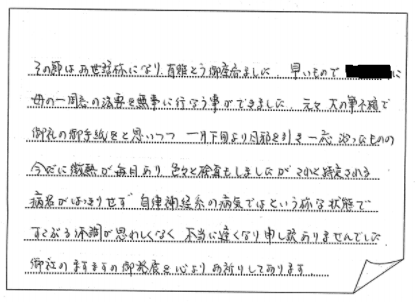 その節はお世話様になり、有難とう御座居ました、早いもので に
母の一周忌の法要を無事に行なう事ができました、元々、大の筆不精で
御礼の御手紙をと思いつつ 一月下旬より風邪を引き一応治ったものの
今だに微熱が毎日あり 色々と検査もしましたが これと特定される
病名がはっきりせず 自律神経系の病気ではという様な状態で
すこぶる体調が思わしくなく 本当に遅くなり申し訳ありませんでした
御社のますますの御発展を心よりお祈りしてあります